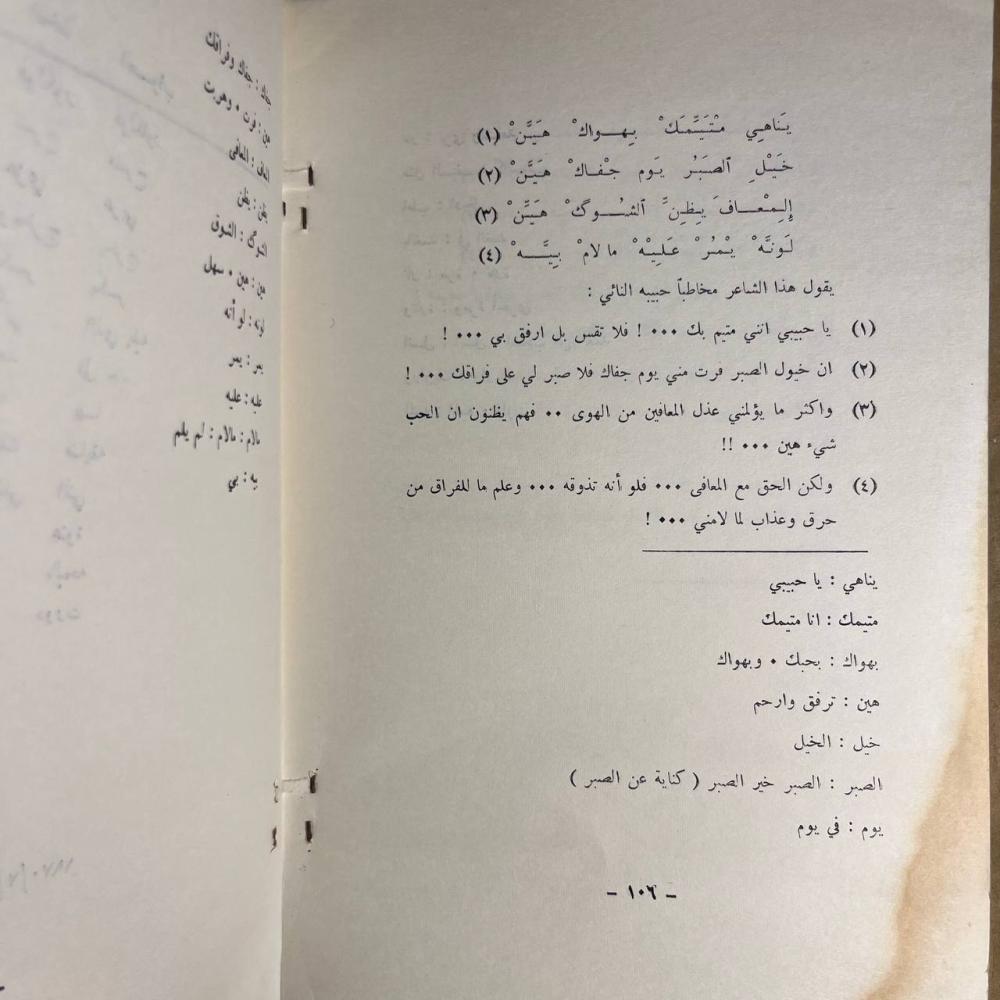 يَناهِي مْتَيَّمَكْ بِهواكْ هَيَّنْ (١)
خَيْلِ الصَبَرُ يَوم جْفاكْ هَيَّنْ (٢)
إلِمْعافَ يِظِنَّ الشُوگْ هَيِّنْ (٣)
لَونَّهْ يْمُرْ عَلَيْهْ مالامْ بِيَّهْ (٤)
يقول هذا الشاعر مخاطباً حبيبه النائي :
(١) يا حبيبي انني متيم بك ٠٠٠ ! فلا تقس بل ارفق بي ٠٠٠ !
(٢) ان خيول الصبر فرت مني يوم جفاك فلا صبر لي على فراقك ٠٠٠ !
(٣) واكثر ما يؤلمني عذل المعافين من الهوى ٠٠ فهم يظنون ان الحب
شيء هين ٠٠٠ !!
(٤) ولكن الحق مع المعافى ٠٠٠ فلو أنه تذوقه ٠٠٠ وعلم ما للفراق من
حرق وعذاب لما لامني ٠٠٠ !
يناهي : يا حبيبي
متيمك : انا متيمك
بهواك : بحبك ٠ وبهواك
هين : ترفق وارحم
خيل : الخيل
الصبر : الصبر خير الصبر ( كناية عن الصبر )
يوم : في يوم
– ١٠٦ –
جفاك : جفاك وفراقك
هين : فرت ٠ وهربت
المعافى
يظن : يظن
الشوگ : الشوق
هين : هين ٠ سهل
لونه : لو أنه
يمر : يمر
عليه : عليه
مالام : مالام : لم يلم
بيه : بي